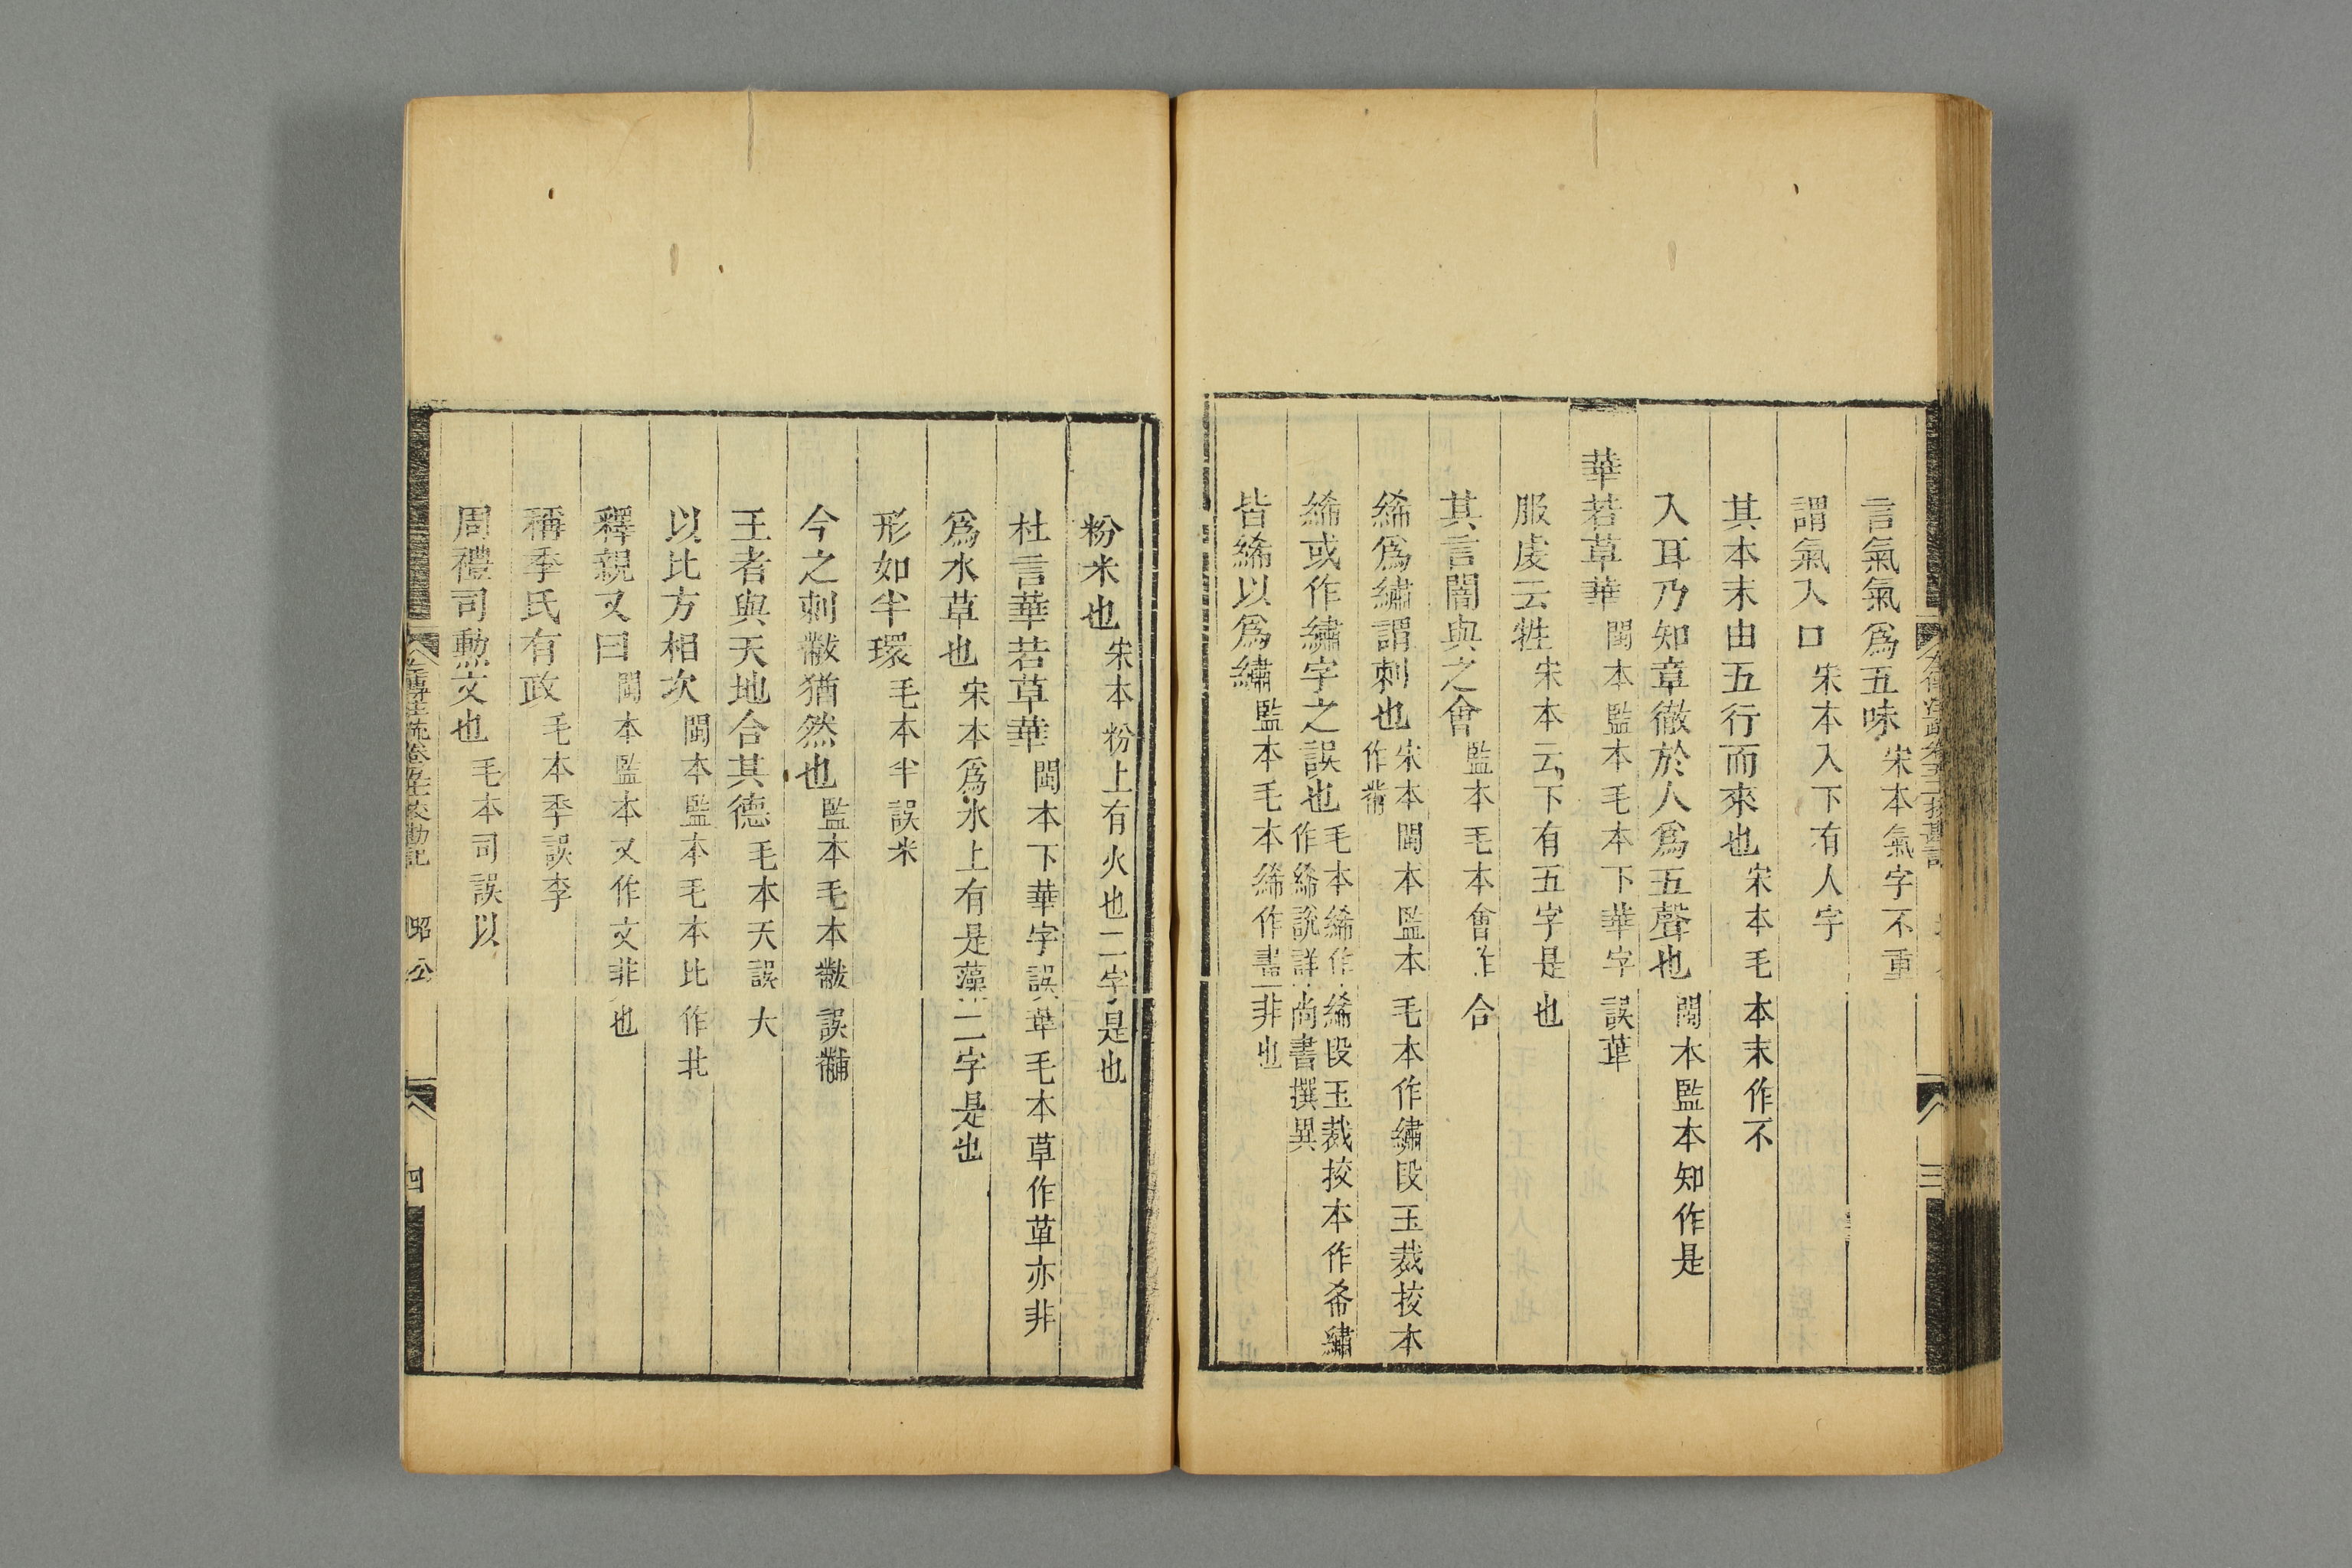 言氣氣爲五味宋本氣字不重
謂氣入口宋本入下有人字
其本末由五行而來也宋本毛本末作不
入耳乃知章徹於人爲五聲也閩本監本知作是
華若草華閩本監本毛本下華字誤葉
服虔云牲宋本云下有五字是也
其言闇與之會監本毛本會作合
絺爲繡謂刺也宋本閩本監本毛本作繡段玉裁挍本
作黹
絺或作繡字之誤也毛本絺作絺段玉裁挍本作希繡
作絺說詳尚書撰異
皆絺以爲繡監本毛本絺作畫非也
粉米也宋本粉上有火也二字是也
杜言華若草華閩本下華字誤葉毛本草作革亦非
爲水草也宋本爲水上有是藻二字是也
形如半環毛本半誤米
今之刺黻猶然也監本毛本黻誤黼
王者與天地合其德毛本天誤大
以比方相次閩本監本毛本比作北
釋親又曰閩本監本又作文非也
稱季氏有政毛本季誤李
周禮司勲文也毛本司誤以
左傳注疏卷五十一挍勘記 昭公 四
三